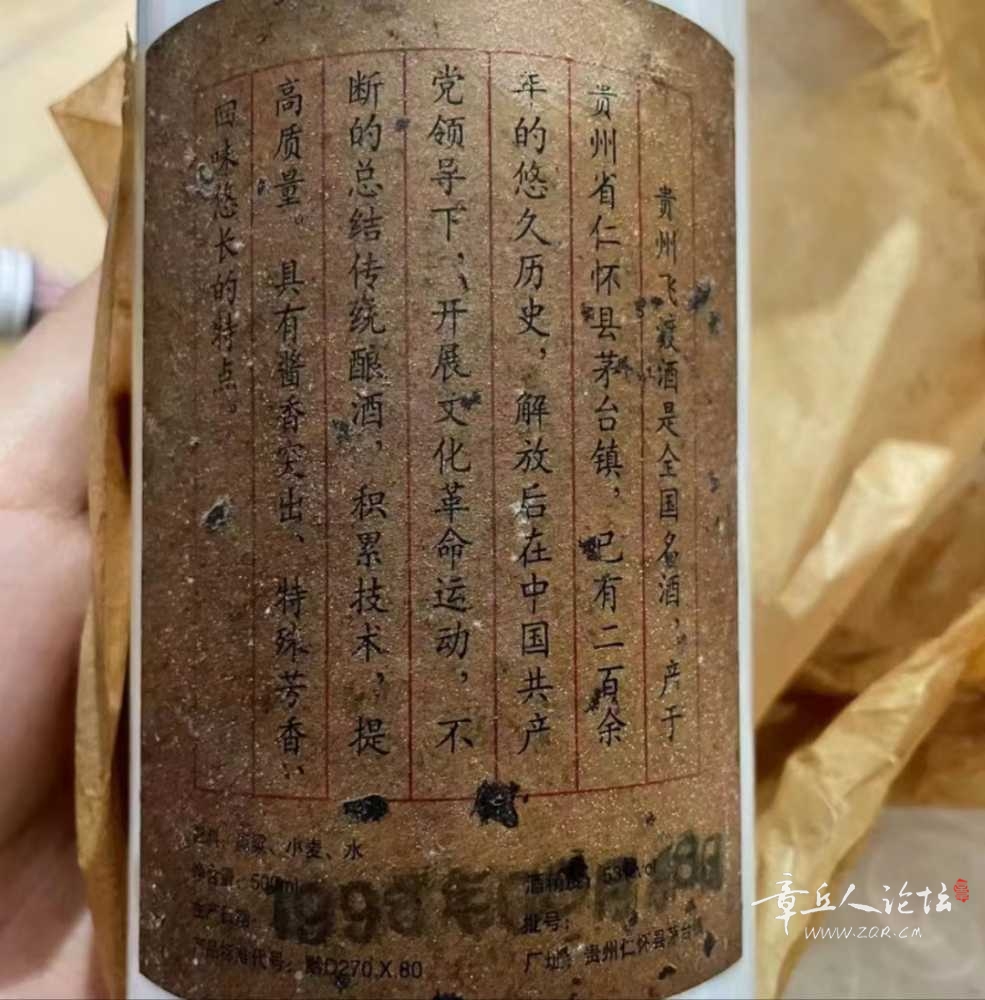 贵州飞渡酒是全国名酒，产于
贵州省仁怀县茅台镇，已有二百余
年的悠久历史，解放后在中国共产
党领导下，开展文化革命运动，不
断的总结传统酿酒，积累技术，提
高质量。具有酱香突出、特殊芳香、
回味悠长的特点。
小麦、水
净含量：500ml
酒精度：53%vol
批号：
产品标准代号：黔D270.X80
厂址：贵州仁怀县茅台
章丘人论坛
WWW.ZQR.CM